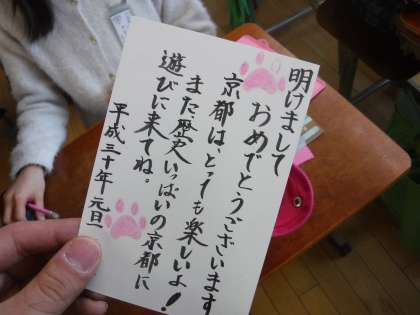 明けまして
おめでとうございます
京都は、とっても楽しいよ!
また歴史いっぱいの京都に
遊びに来てね。
平成三十年 元旦